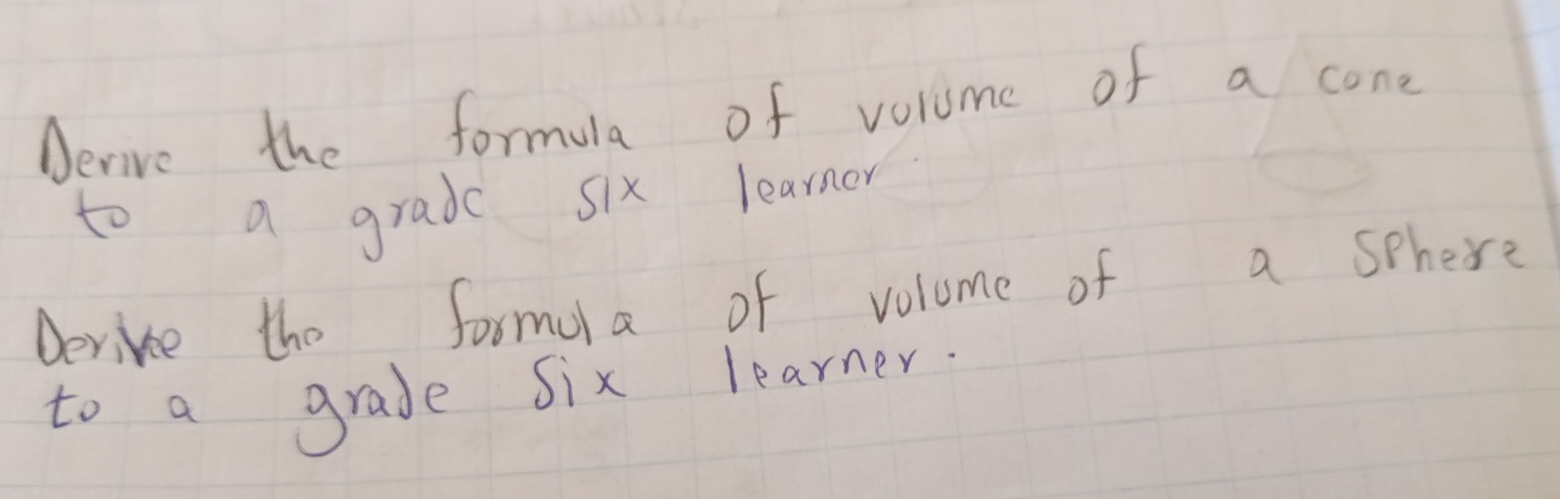 Derive the formula of volume of a cone
to a grade six learner
Derive the formula of volume of a sphere
to a grade six learner.